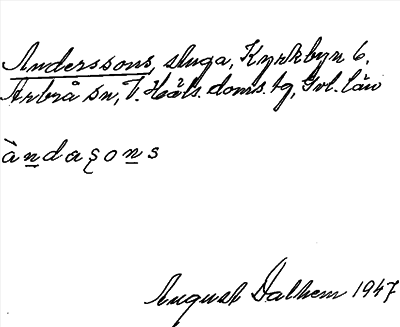 Anderssons, stuga, Kyrkbyn 6,
Arbrå sn, V. Häls. doms. tg, Gvl. län
àn̲daşon̲s
August Dalhem 1947